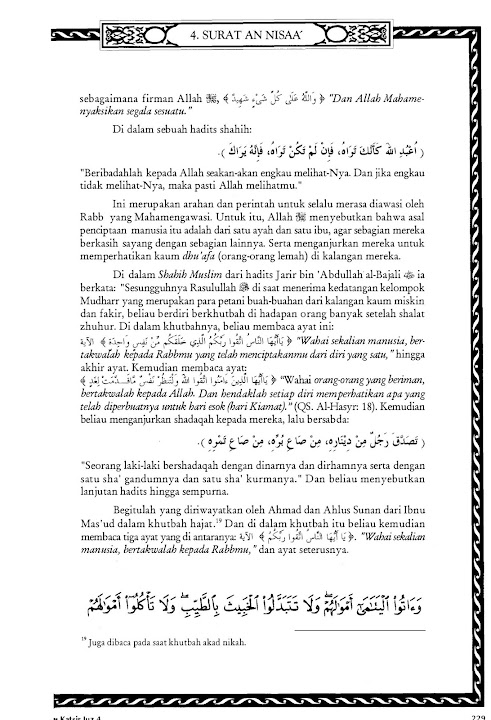 4. SURAT AN NISAA'
sebagaimana firman Allah ﷻ, ﴿ وَاللَّهُ عَلَى كُلِّ شَيْءٍ شَهِيدٌ ﴾ "Dan Allah Mahame-
nyaksikan segala sesuatu."
Di dalam sebuah hadits shahih:
( اُعْبُدِ اللهَ كَأَنَّكَ تَرَاهُ، فَإِنْ لَمْ تَكُنْ تَرَاهُ، فَإِنَّهُ يَرَاكَ ).
"Beribadahlah kepada Allah seakan-akan engkau melihat-Nya. Dan jika engkau
tidak melihat-Nya, maka pasti Allah melihatmu."
Ini merupakan arahan dan perintah untuk selalu merasa diawasi oleh
Rabb yang Mahamengawasi. Untuk itu, Allah ﷻ menyebutkan bahwa asal
penciptaan manusia itu adalah dari satu ayah dan satu ibu, agar sebagian mereka
berkasih sayang dengan sebagian lainnya. Serta menganjurkan mereka untuk
memperhatikan kaum dhu'afa (orang-orang lemah) di kalangan mereka.
Di dalam Shahih Muslim dari hadits Jarir bin 'Abdullah al-Bajali ؓ ia
berkata: "Sesungguhnya Rasulullah ﷺ di saat menerima kedatangan kelompok
Mudharr yang merupakan para petani buah-buahan dari kalangan kaum miskin
dan fakir, beliau berdiri berkhutbah di hadapan orang banyak setelah shalat
zhuhur. Di dalam khutbahnya, beliau membaca ayat ini:
﴿ يَاأَيُّهَا النَّاسُ اتَّقُوا رَبَّكُمُ الَّذِي خَلَقَكُم مِّنْ نَفْسٍ وَاحِدَةٍ ﴾ الآية "Wahai sekalian manusia, ber-
takwalah kepada Rabbmu yang telah menciptakanmu dari diri yang satu," hingga
akhir ayat. Kemudian membaca ayat:
﴿ يَاأَيُّهَا الَّذِينَ ءَامَنُوا اتَّقُوا اللهَ وَلْتَنظُرْ نَفْسٌ مَّاقَدَّمَتْ لِغَدٍ ﴾ "Wahai orang-orang yang beriman,
bertakwalah kepada Allah. Dan hendaklah setiap diri memperhatikan apa yang
telah diperbuatnya untuk hari esok (hari Kiamat)." (QS. Al-Hasyr: 18). Kemudian
beliau menganjurkan shadaqah kepada mereka, lalu bersabda:
( تَصَدَّقَ رَجُلٌ مِنْ دِيْنَارِهِ، مِنْ صَاعِ بُرِّهِ، مِنْ صَاعِ تَمْرِهِ ).
"Seorang laki-laki bershadaqah dengan dinarnya dan dirhamnya serta dengan
satu sha' gandumnya dan satu sha' kurmanya." Dan beliau menyebutkan
lanjutan hadits hingga sempurna.
Begitulah yang diriwayatkan oleh Ahmad dan Ahlus Sunan dari Ibnu
Mas'ud dalam khutbah hajat.¹⁹ Dan di dalam khutbah itu beliau kemudian
membaca tiga ayat yang di antaranya: ﴿ يَا أَيُّهَا النَّاسُ اتَّقُوا رَبَّكُمُ ﴾ الآية. "Wahai sekalian
manusia, bertakwalah kepada Rabbmu," dan ayat seterusnya.
وَءَاتُوا۟ ٱلْيَتَـٰمَىٰٓ أَمْوَٰلَهُمْ ۖ وَلَا تَتَبَدَّلُوا۟ ٱلْخَبِيثَ بِٱلطَّيِّبِ ۖ وَلَا تَأْكُلُوٓا۟ أَمْوَٰلَهُمْ
¹⁹ Juga dibaca pada saat khutbah akad nikah.
u Katsir Juz 4
229